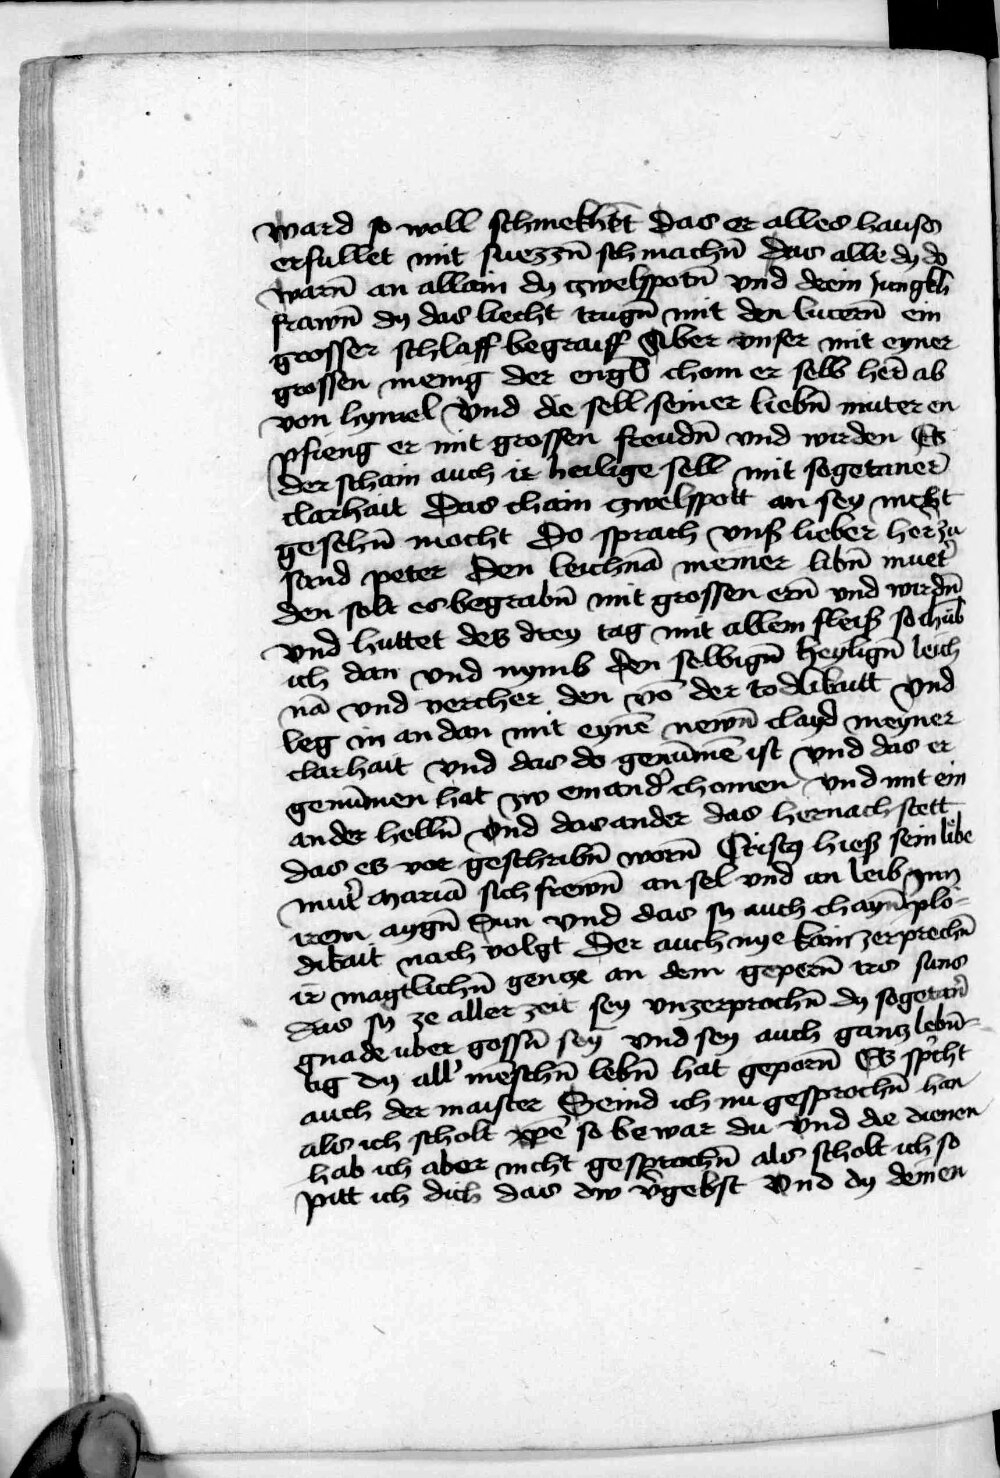 ward so woll schmekhēt das er alles hauss
erfullet mit suezzn̄ schmachn̄ das alle dy do
warn̄ an allain dy zwelfpotn̄ vnd drein Jungkh
frawn̄ dy das liecht trugn̄ mit den lucern̄ ein
grosser schlaff begraiff Aber vnser mit eyner
grossen menig der engl̄ chom er selb her̄ ab
von hymel Vnd die sell seiner liebn̄ muter en
pfieng er mit grossen freudn̄ vnd wirden Es
der schain auch ir heilige sell mit sogetaner
clarhait Das chain zwelfpott an sey nicht
gesehn̄ mocht Do sprach vnß lieber her zu
sand peter Den leichnā meiner libn̄ muet̄
den solt es begrabn̄ mit grossen ern̄ vnd wirdn̄
vnd huttet des drey tag mit allem fleiß so chūb
ich dan vnd nymb den selbign̄ heylign̄ leich
nā vnd vercher den vō der todlikaitt vnd
leg in an dan mit eynē newn̄ clayd meyner
clarhait vnd das do genūmē ist vnd das er
genūmen hat zw einand̄ chomen vnd mit ein
ander helln̄ vnd das ander das hernach stett
das es vor geschribn̄ worn̄ Cristg hieß sein libe
mut̄ Mariā sich frewn̄ an sel vnd an leib Inn
irem aygn̄ Sun vnd das sy auch chayn̄ plö-
dikait nach volgt Der auch nye kain zerprechn̄
ir magtlichn̄ gencze an dem gepern̄ irs suns
das sy ze aller zeit sey vnzerprochn̄ dy sogetan̄
gnade uber gossn̄ sey vnd sey auch gancz lebn̄-
tig dy all meschn̄ lebn̄ hat geporn̄ Es sp̄cht
auch der maister Seind ich nu gesprochn̄ han
als ich scholt xp̄e so bewar du vnd die dienen
hab ich aber nicht gesprochn̄ als scholt ich so
pitt ich dich das dw v̄gebst vnd dy deinen